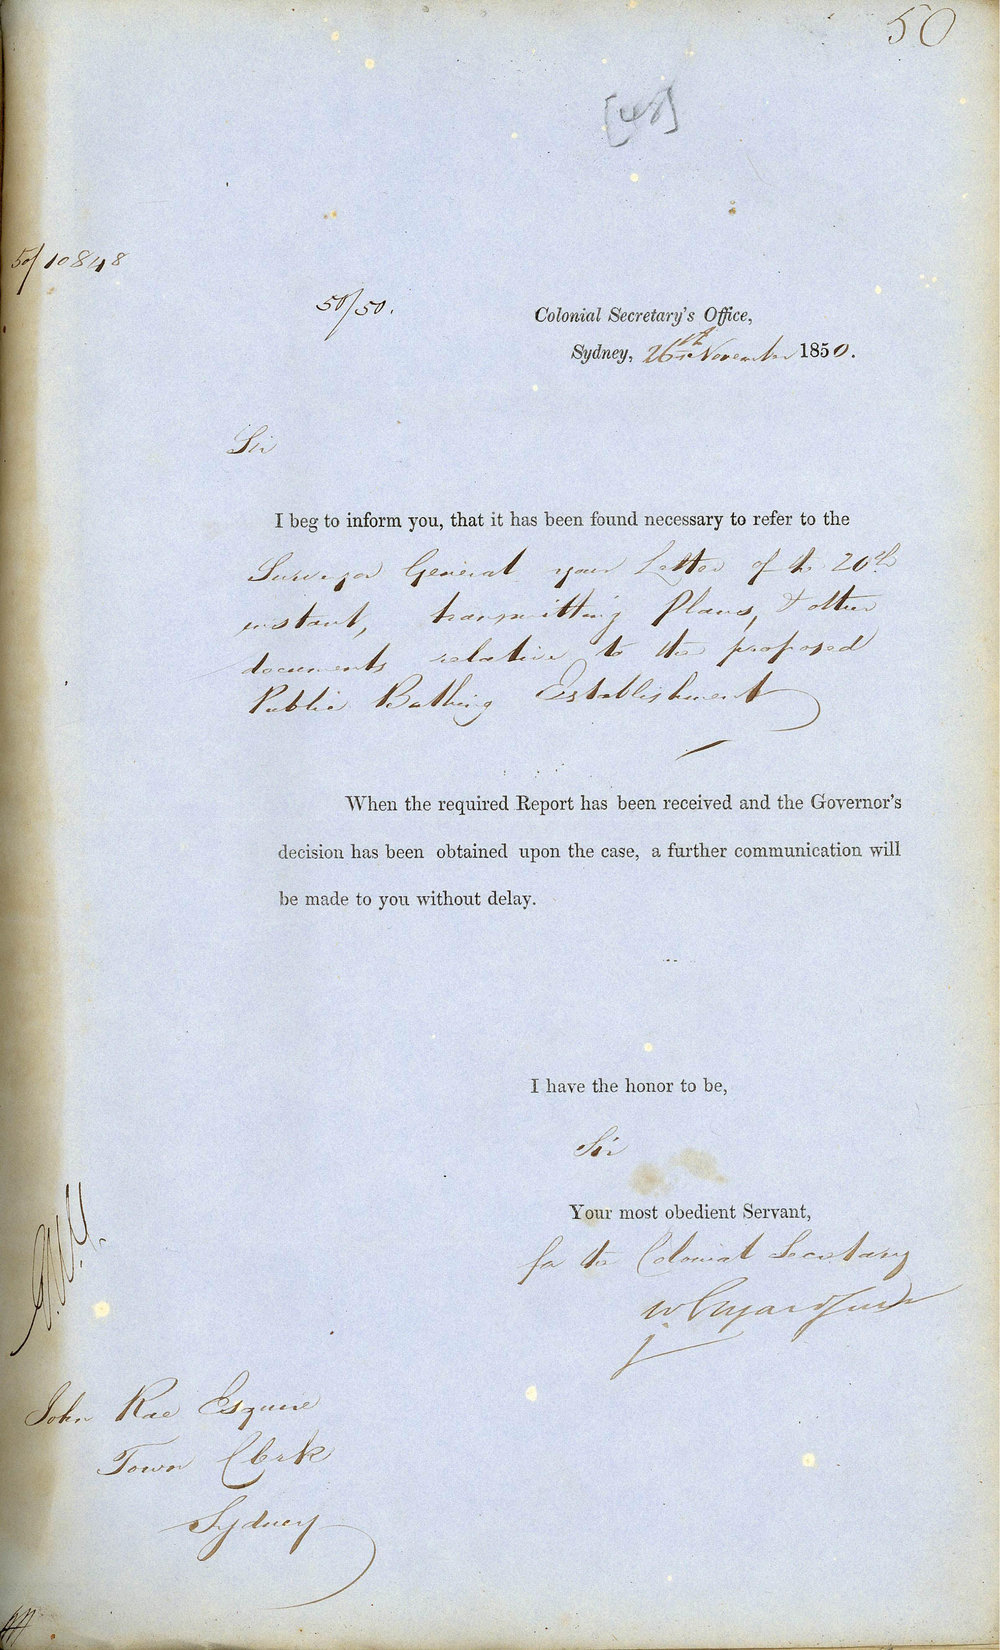 50
[48]
50/10848
50/50.
Colonial Secretary's Office,
Sydney, 26th November 1850.
Sir
I beg to inform you, that it has been found necessary to refer to the
Surveyor General your Letter of the 20th
instant, transmitting Plans, & other
documents relative to the proposed
Public Bathing Establishment
When the required Report has been received and the Governor's
decision has been obtained upon the case, a further communication will
be made to you without delay.
I have the honor to be,
Sir
Your most obedient Servant,
for the Colonial Secretary
John Rae Esquire
Town Clerk
Sydney